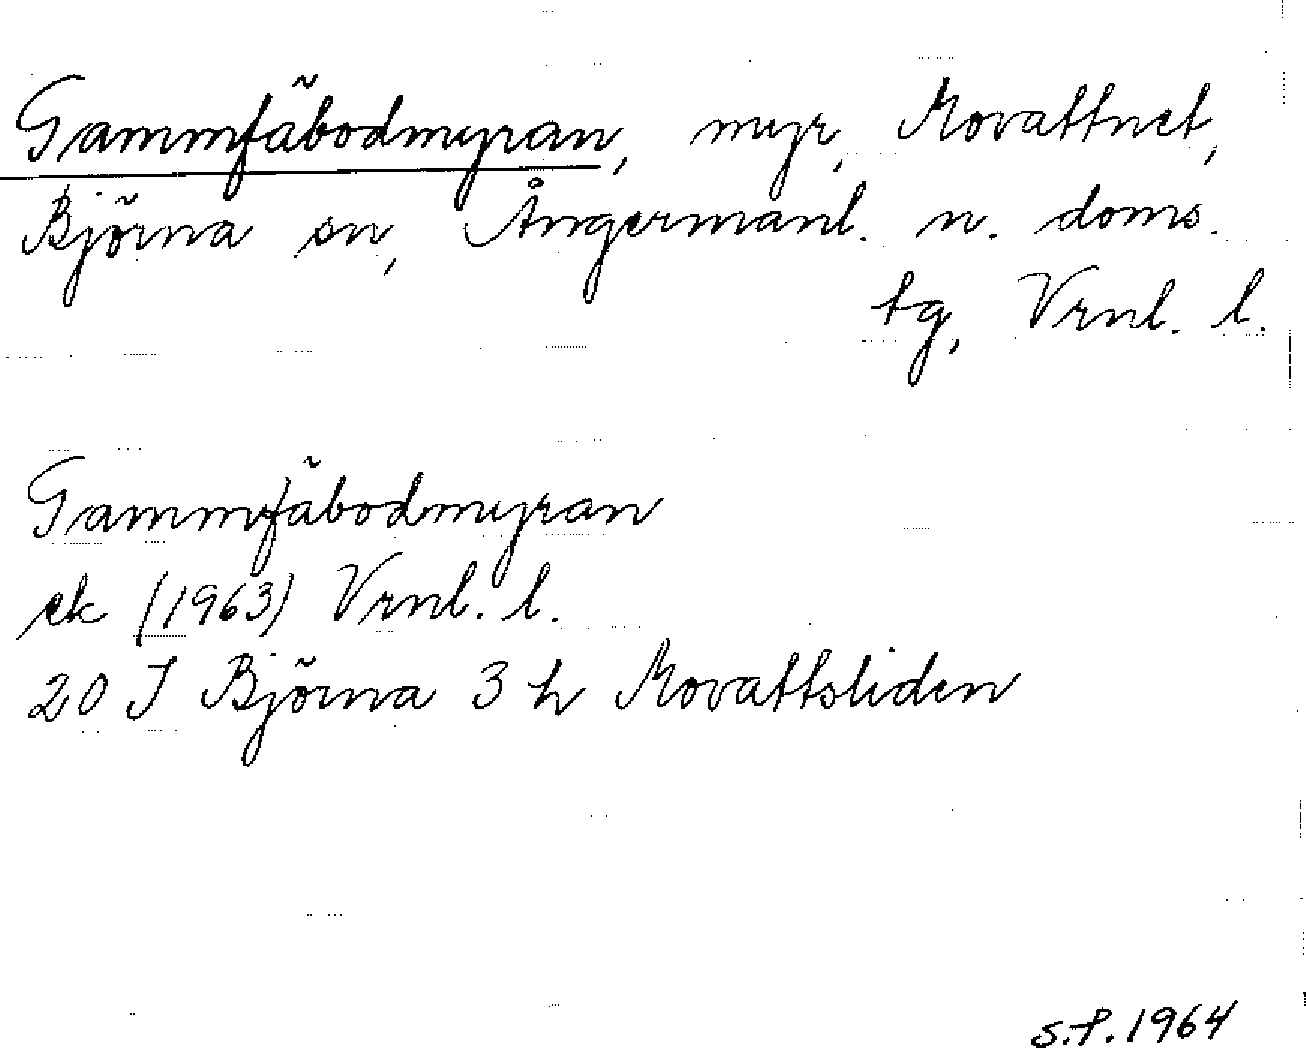 Gammfäbodmyran, myr, Movattnet,
Björna sn, Ångermanl. n. doms.
tg, Vrnl. l.
Gammfäbodmyran
ek (1963) Vrnl. l.
20 I Björna 3 h Movattsliden
S.P. 1964